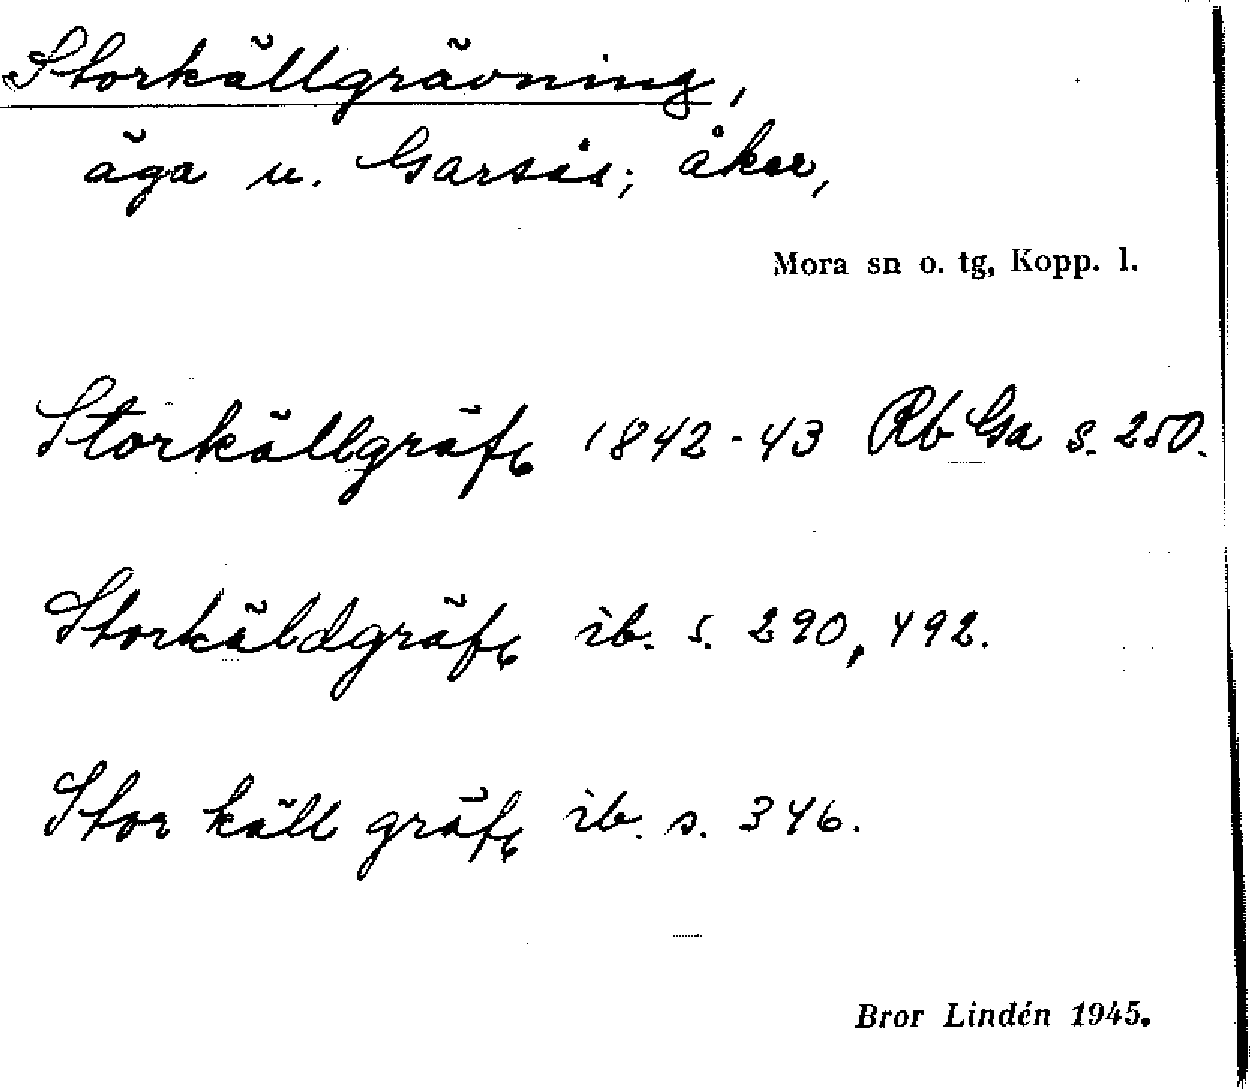 Storkällgrävning,
äga u. Garsås; åker,
Mora sn o. tg, Kopp. l.
Storkällgräfg 1842-43 Rb Ga s. 250.
Storkäldgräfg ib. s. 290, 492.
Stor käll gräfg ib. s. 346.
Bror Lindén 1945.